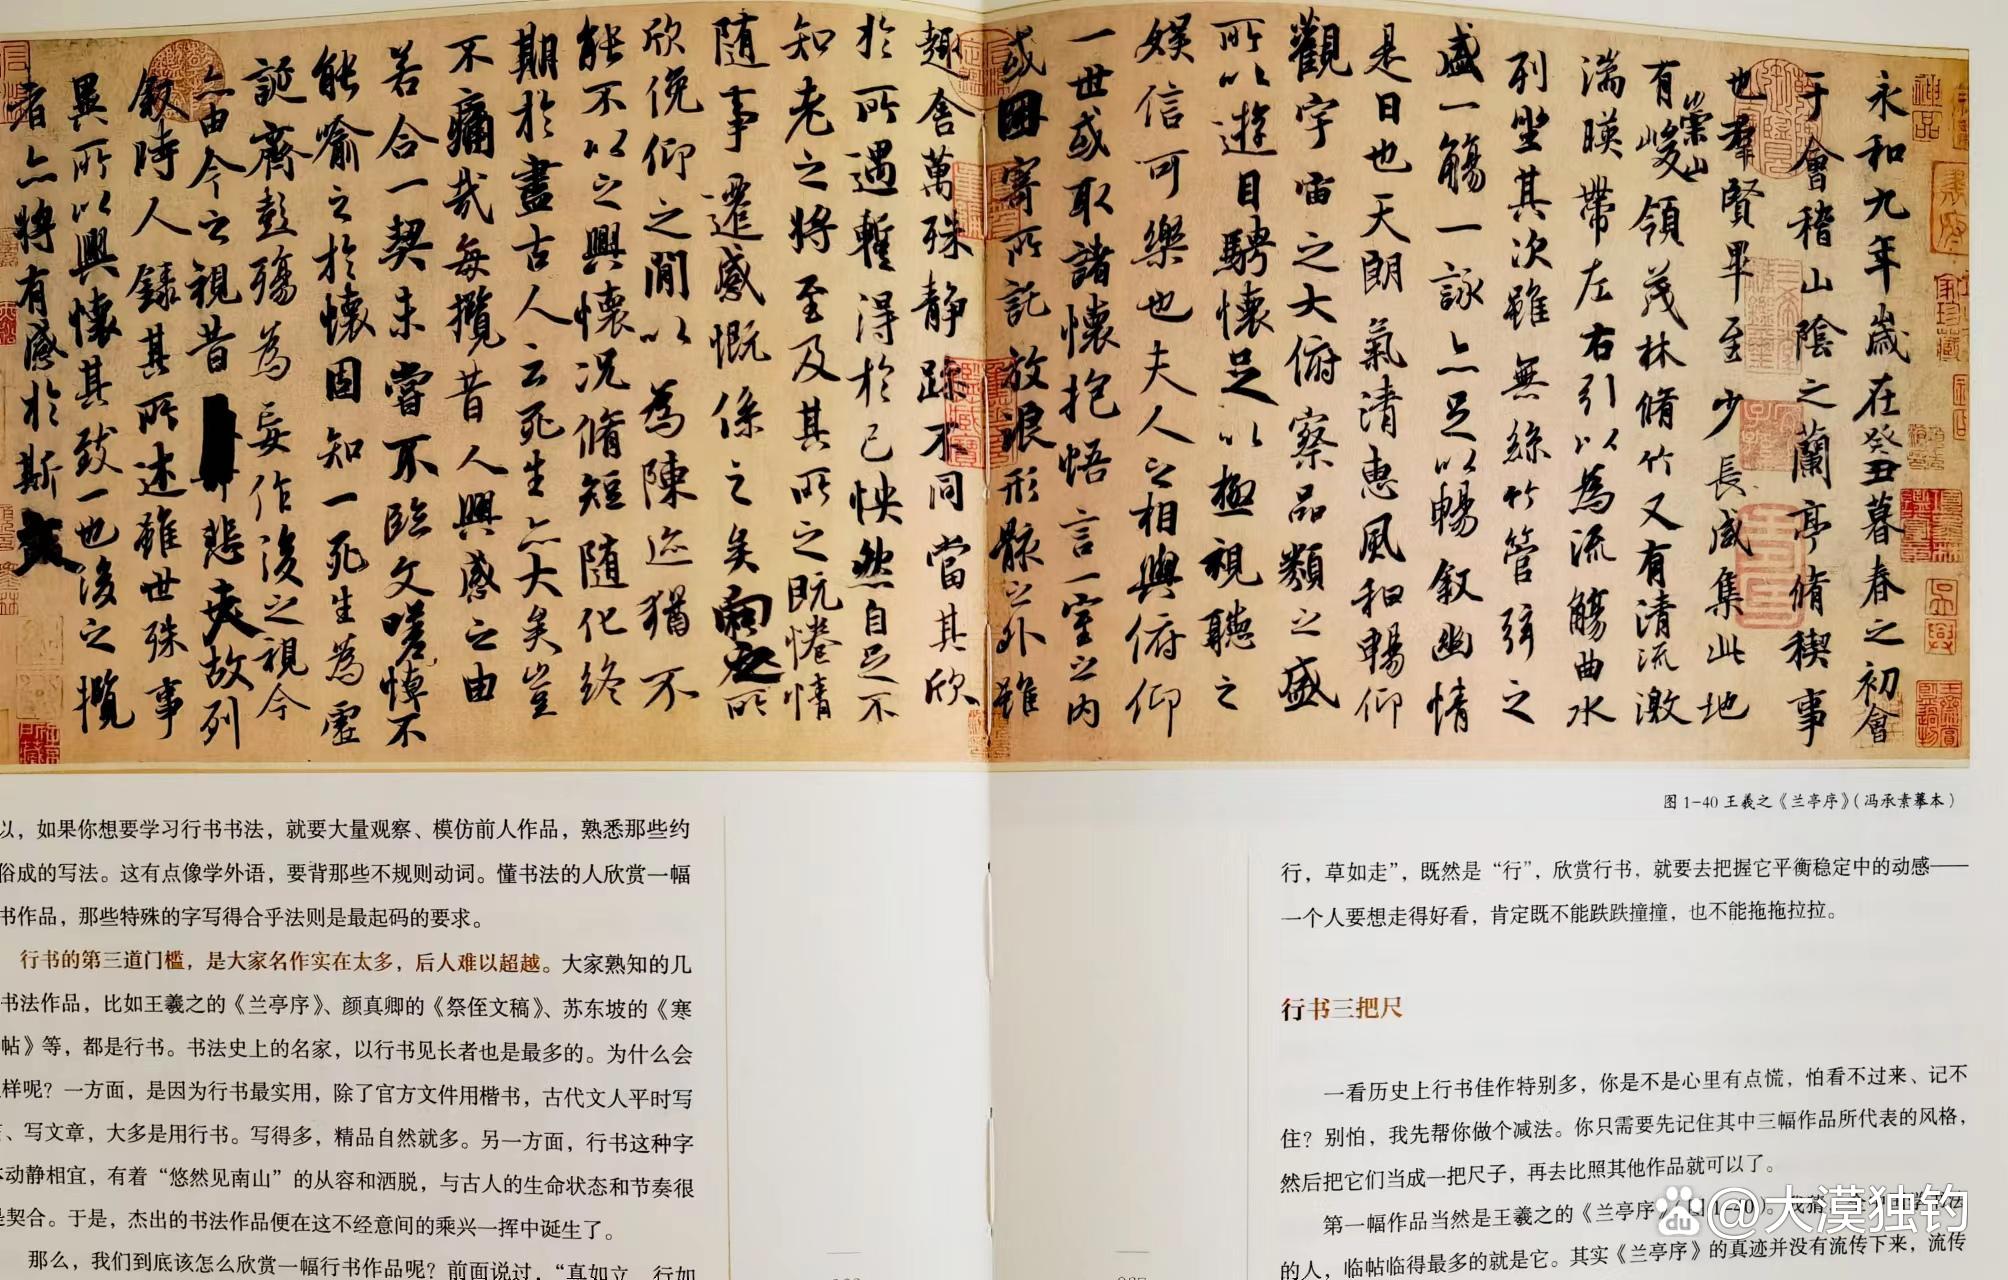 永和九年歲在癸丑暮春之初會
于會稽山陰之蘭亭脩稧事
也羣賢畢至少長咸集此地
有崇山峻領茂林脩竹又有清流激
湍暎帶左右引以為流觴曲水
列坐其次雖無絲竹管弦之
盛一觴一詠亦足以暢敘幽情
是日也天朗氣清惠風和暢仰
觀宇宙之大俯察品類之盛
所以遊目騁懷足以極視聽之
娛信可樂也夫人之相與俯仰
一世或取諸懷抱悟言一室之內
或因寄所託放浪形骸之外雖
趣舍萬殊靜躁不同當其欣
於所遇暫得於己怏然自足不
知老之將至及其所之既惓情
隨事遷感慨係之矣向之所
欣俛仰之閒以為陳迹猶不
能不以之興懷況脩短隨化終
期於盡古人云死生亦大矣豈
不痛哉每攬昔人興感之由
若合一契未嘗不臨文嗟悼不
能喻之於懷固知一死生為虛
誕齊彭殤為妄作後之視今
亦由今之視昔悲夫故列
敘時人錄其所述雖世殊事
異所以興懷其致一也後之攬
者亦將有感於斯文
图1-40 王羲之《兰亭序》（冯承素摹本）
以，如果你想要学习行书书法，就要大量观察、模仿前人作品，熟悉那些约
俗成的写法。这有点像学外语，要背那些不规则动词。懂书法的人欣赏一幅
书作品，那些特殊的字写得合乎法则是最起码的要求。
行书的第三道门槛，是大家名作实在太多，后人难以超越。大家熟知的几
书法作品，比如王羲之的《兰亭序》、颜真卿的《祭侄文稿》、苏东坡的《寒
帖》等，都是行书。书法史上的名家，以行书见长者也是最多的。为什么会
样呢？一方面，是因为行书最实用，除了官方文件用楷书，古代文人平时写
、写文章，大多是用行书。写得多，精品自然就多。另一方面，行书这种字
动静相宜，有着“悠然见南山”的从容和洒脱，与古人的生命状态和节奏很
是契合。于是，杰出的书法作品便在这不经意间的乘兴一挥中诞生了。
那么，我们到底该怎么欣赏一幅行书作品呢？前面说过，“真如立，行如
行，草如走”，既然是“行”，欣赏行书，就要去把握它平衡稳定中的动感——
一个人要想走得好看，肯定既不能跌跌撞撞，也不能拖拖拉拉。
行书三把尺
一看历史上行书佳作特别多，你是不是心里有点慌，怕看不过来、记不
住？别怕，我先帮你做个减法。你只需要先记住其中三幅作品所代表的风格，
然后把它们当成一把尺子，再去比照其他作品就可以了。
第一幅作品当然是王羲之的《兰亭序》
的人，临帖临得最多的就是它。其实《兰亭序》的真迹并没有流传下来，流传
Bai du @大漠独钓